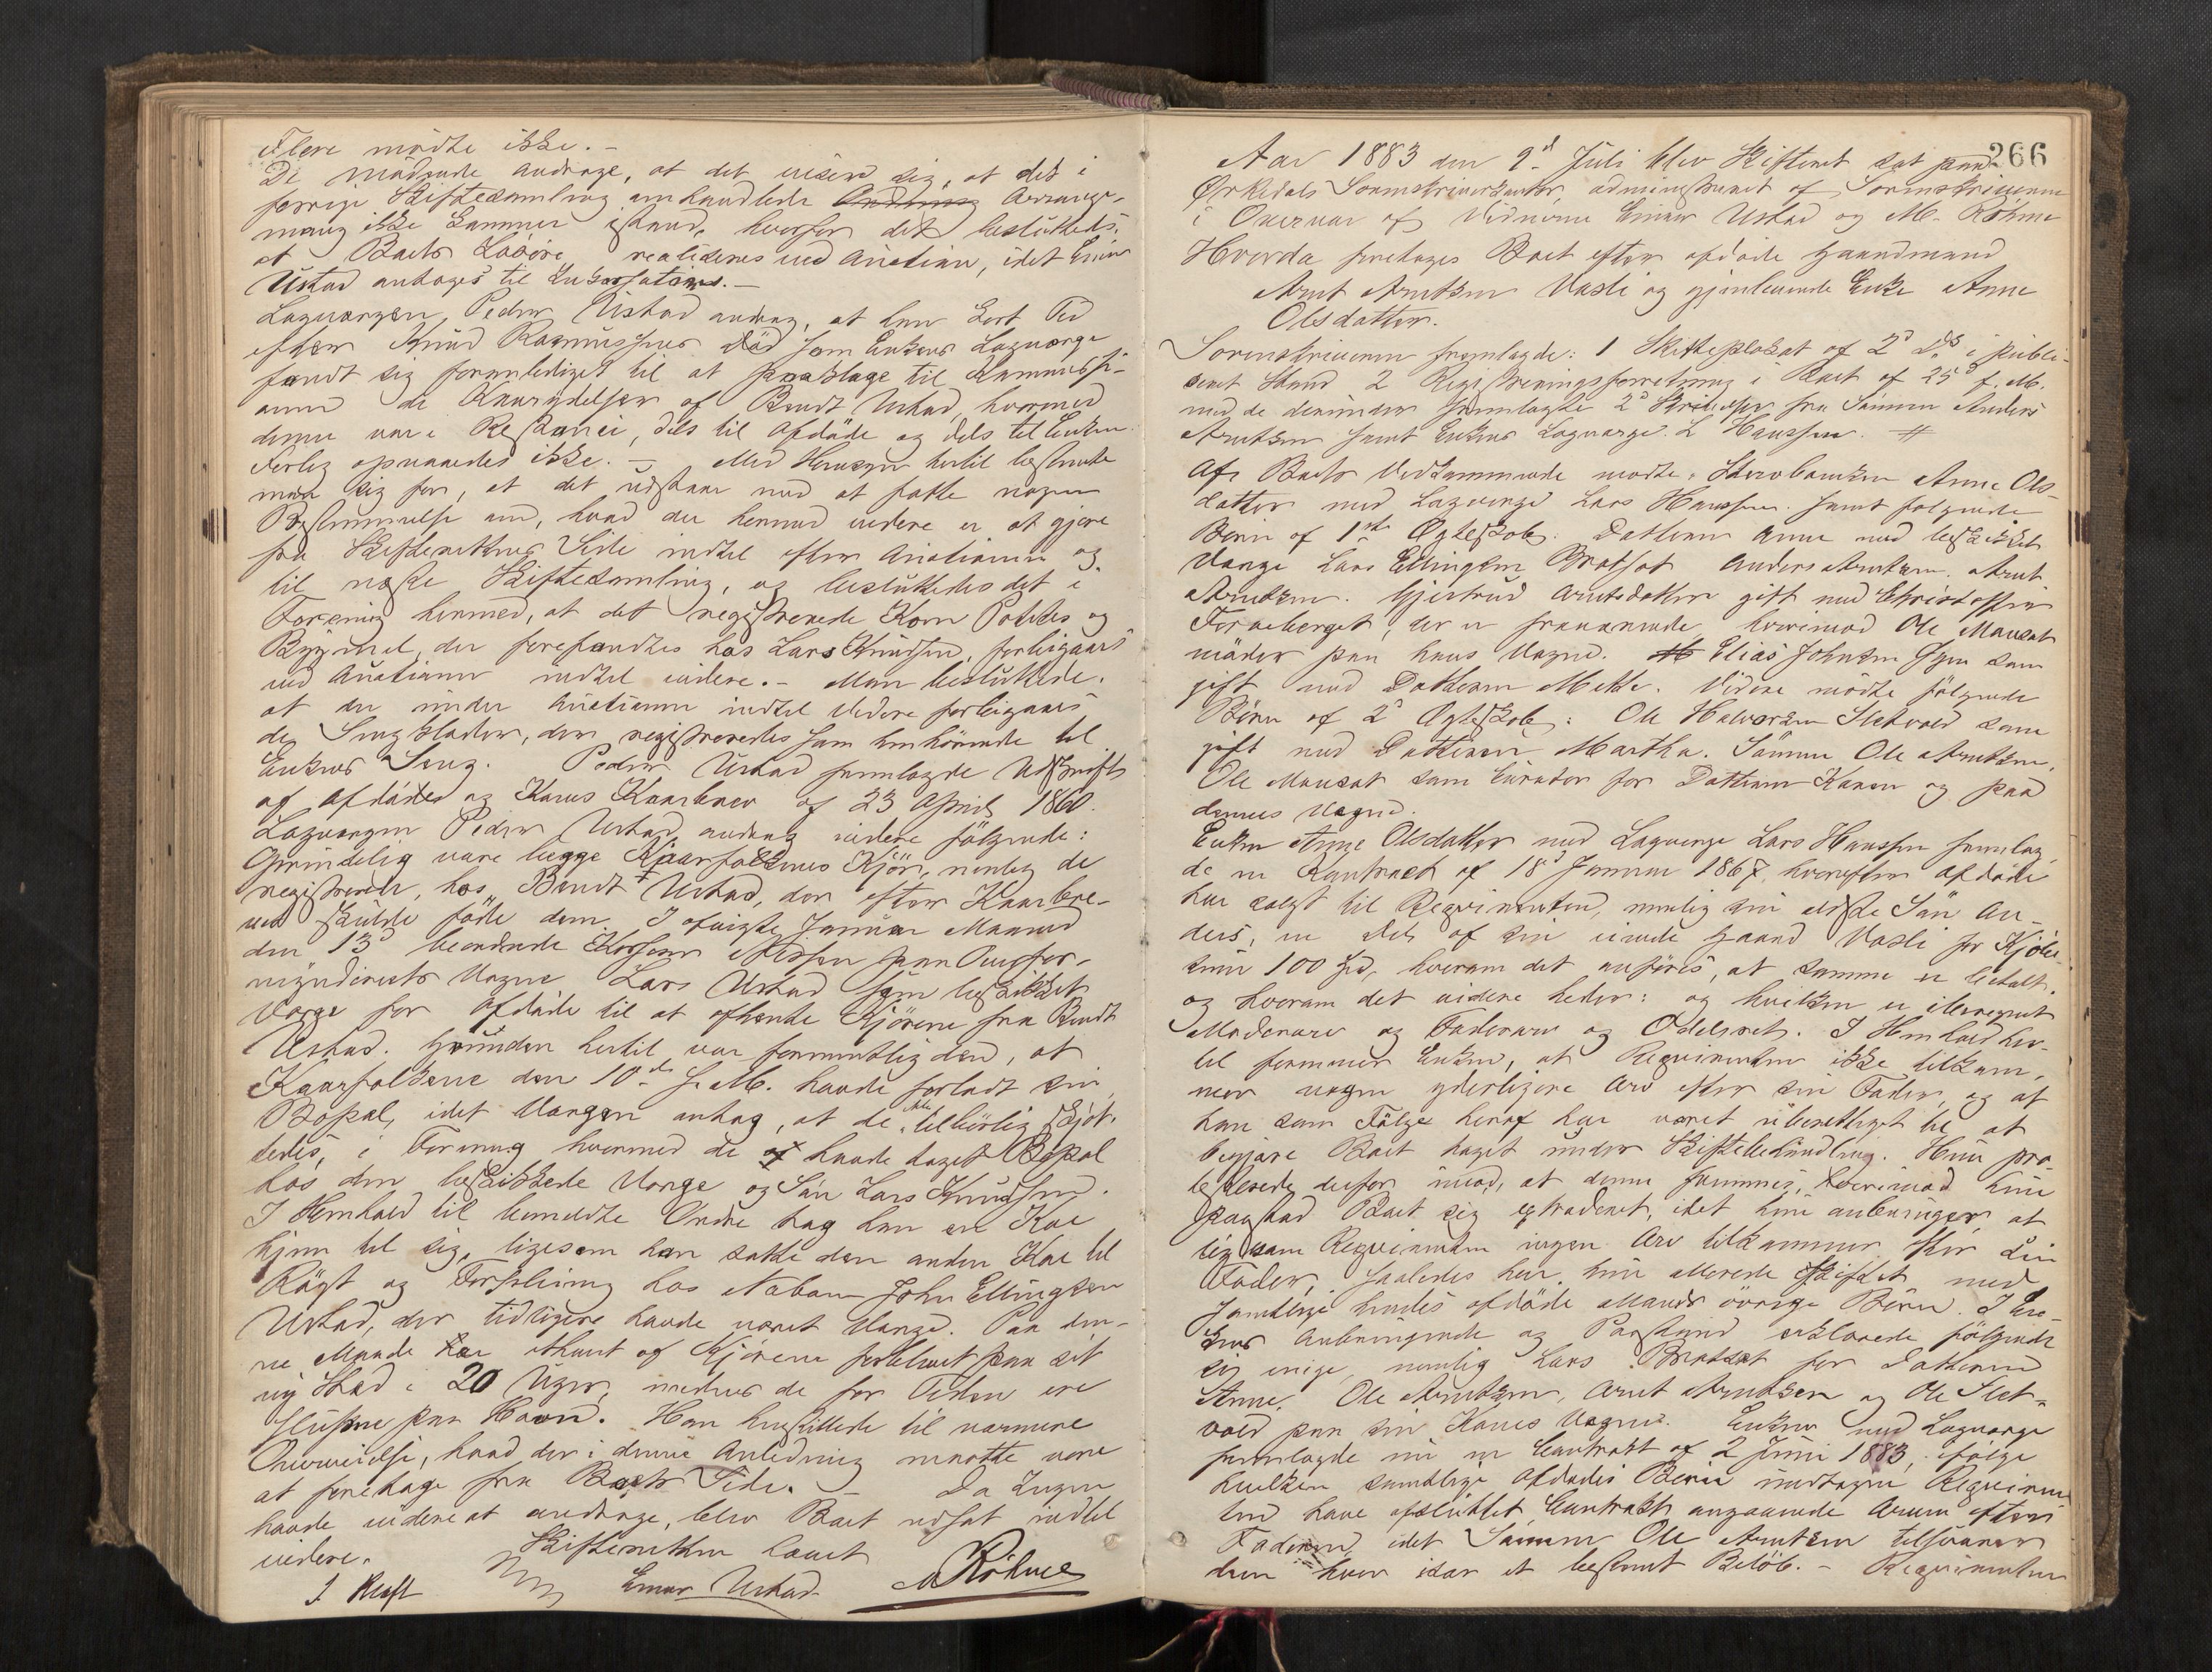 Flere mødte ikke. –
De mødende androge, at det viser sig, at det i
forrige Skiftesamling omhandlede Arrange-
mang ikke kommer istand, hvorfor det besluttedes,
at Boets Løsøre realiseres ved Auction, idet Einar
Ustad antages til Inkassator. –
Lagværgen, Peder Ustad androg, at han kort Tid
efter Knud Rasmussens Død som Enkens Lagværge
fandt sig foranlediget til at paaklage til Kommissi-
onen de Kaarydelser af Bendt Ustad, hvormed
denne var i Restance, dels til Afdøde og dels til Enken.
Forlig opnaaedes ikke. – Med Hensyn hertil bestemte
man sig for, at det udstaar med at fatte nogen
Bestemmelse om, hvad der hermed videre er at gjøre
fra Skifterettens Side indtil efter Auctionen og
til næste Skiftesamling, og besluttedes det i
Forening hermed, at det registrerede Korn Potetes og
Bygmel, der forefandtes hos Lars Knudsen, forbigaaes
ved Auctionen indtil videre. – Man besluttede,
at der under Auctionen indtil videre forbigaaes
de Sengklæder, der registreredes som henhørende til
Enkens Seng. Peder Ustad fremlagde Udskrift
af Afdødes og Kones Kaarbrev af 23 April 1860.
Lagværgen Peder Ustad androg videre følgende:
Oprindelig vare begge Kaarfolkenes Kjør, nemlig de
registrerede, hos Bendt Ustad, der efter Kaarbre-
vet skulde føde dem. I afvigte Januar Maaned
den 13d beordrede Lars Ustad som beskikket
Værge for Afdøde til at afhente Kjørene fra Bendt
Ustad. Grunden hertil var formentlig den, at
Kaarfolkene den 10de s. M. havde forladt sin
Bopæl, idet Værgen antog, at de ikke tilbørlig skjøt-
tedes, i Forening hvormed de havde taget Bopæl
hos den beskikkede Værge og Søn Lars Knudsen.
I Henhold til bemeldte Ordre tog han en Ko
hjem til sig, ligesom han satte den anden Ko til
Røgt og Forpleining hos Naboen John Ellingsen
Ustad, der tidligere havde været Værge. Paa den-
ne Maade har ethvert af Kjørene forblevet paa sit
ny Sted i 20 Uger, medens de for Tiden ere
slupne paa Havn. Han henstillede til nærmere
Overveielse, hvad der i denne Anledning maatte være
at foretage fra Boets Side. – Da Ingen
havde videre at andrage, blev Boet udsat indtil
videre. Skifteretten hævet
J. Kraft Einar Ustad M Röhme
266
Aar 1883 den 9d Juli blev Skifteret sat paa
Ørkedals Sorenskriverkontor, administreret af Sorenskriveren
i Overvær af Vidnerne Einar Ustad og M. Röhme
Hvorda foretoges Boet efter afdøde Gaardmand
Arnt Arntsen Vasli og gjenlevende Enke Anne
Olsdatter.
Sorenskriveren fremlagde: 1 Skifteplakat af 2d Ds i publi-
ceret Stand 2 Registreringsforretning i Boet af 25d f. M.
med de derunder fremlagte 2d Skrivelser fra Sønnen Anders
Arntsen samt Enkens Lagværge L Hansen. #
Af Boets Vedkommende mødte: Stervboenken Anne Ols-
datter med Lagværge Lars Hansen samt følgende
Børn af 1ste Ægteskab: Datteren Anne med beskikket
Værge Lars Ellingsen Bratset Anders Arntsen. Arnt
Arntsen. Gjertrud Arntsdatter gift med Christoffer
Foraberget, der er fraværende, hvorimod Ole Mauset
møder paa hans Vegne. Elias Johnsen som
gift med Datteren Mette. Videre mødte følgende
Børn af 2d Ægteskab: Ole Halvorsen Sletvold som
gift med Datteren Martha. Sønnen Ole Arntsen.
Ole Mauset som Curator for Datteren Karen og paa
dennes Vegne.
Enken Anne Olsdatter med Lagværge Lars Hansen fremlag-
de en Kontrakt af 18d Januar 1867, hvorefter Afdøde
har solgt til Requirenten, nemlig sin ældste Søn An-
ders, en Del af sin eiende Gaard Vasli for Kjøbe-
sum 100 Spd, hvorom det anføres, at samme er betalt,
og hvorom det videre heder: og hvilken er iberegnet
Mødrearv og Fædrearv og Odelsret. I Henhold her-
til formener Enken, at Requirenten ikke tilkom-
mer nogen yderligere Arv efter sin Fader, og at
han som Følge heraf har været uberettiget til at
begjære Boet taget under Skiftebehandling. Hun pro-
testerede derfor imod, at denne fremmes, hvorimod hun
paastod Boet sig extraderet, idet hun anbringer, at
ligesom Requirenten ingen Arv tilkommer efter sin
Fader, saaledes har hun allerede skiftet med
samtlige hendes afdøde Mands øvrige Børn. I En-
kens Anbringende og Paastand erklærede følgende
sig enige, nemlig Lars Bratset for Datteren
Anne, Ole Arntsen, Arnt Arntsen og Ole Slet-
vold paa sin Kones Vegne. Enken med Lagværge
fremlagde nu en Contrakt af 2 Juni 1883, ifølge
hvilken samtlige Afdødes Børn undtagen Requiren-
ten have afsluttet Contrakt angaaende Arven efter
Faderen idet Sønnen Ole Arntsen tilsvarer
dem hver især et bestemt Beløb. – Requirenten